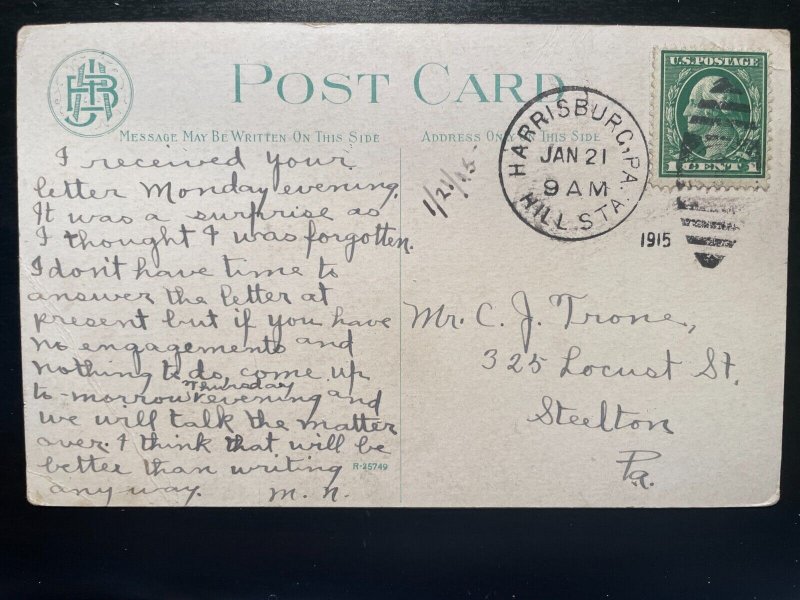 POST CARD
MESSAGE MAY BE WRITTEN ON THIS SIDE
ADDRESS ONLY ON THIS
U.S. POSTAGE
1 CENT 1
HARRISBURG, PA.
JAN 21
9 AM
HILL STA.
1915
1/21/15
I received your
letter Monday evening.
It was a surprise as
I thought I was forgotten.
I don't have time to
answer the letter at
present but if you have
no engagements and
nothing to do, come up
to-morrow Thursday evening and
we will talk the matter
over. I think that will be
better than writing
any way. M. N.
R-25749
Mr. C. J. Trone,
325 Locust St.
Steelton
Pa.